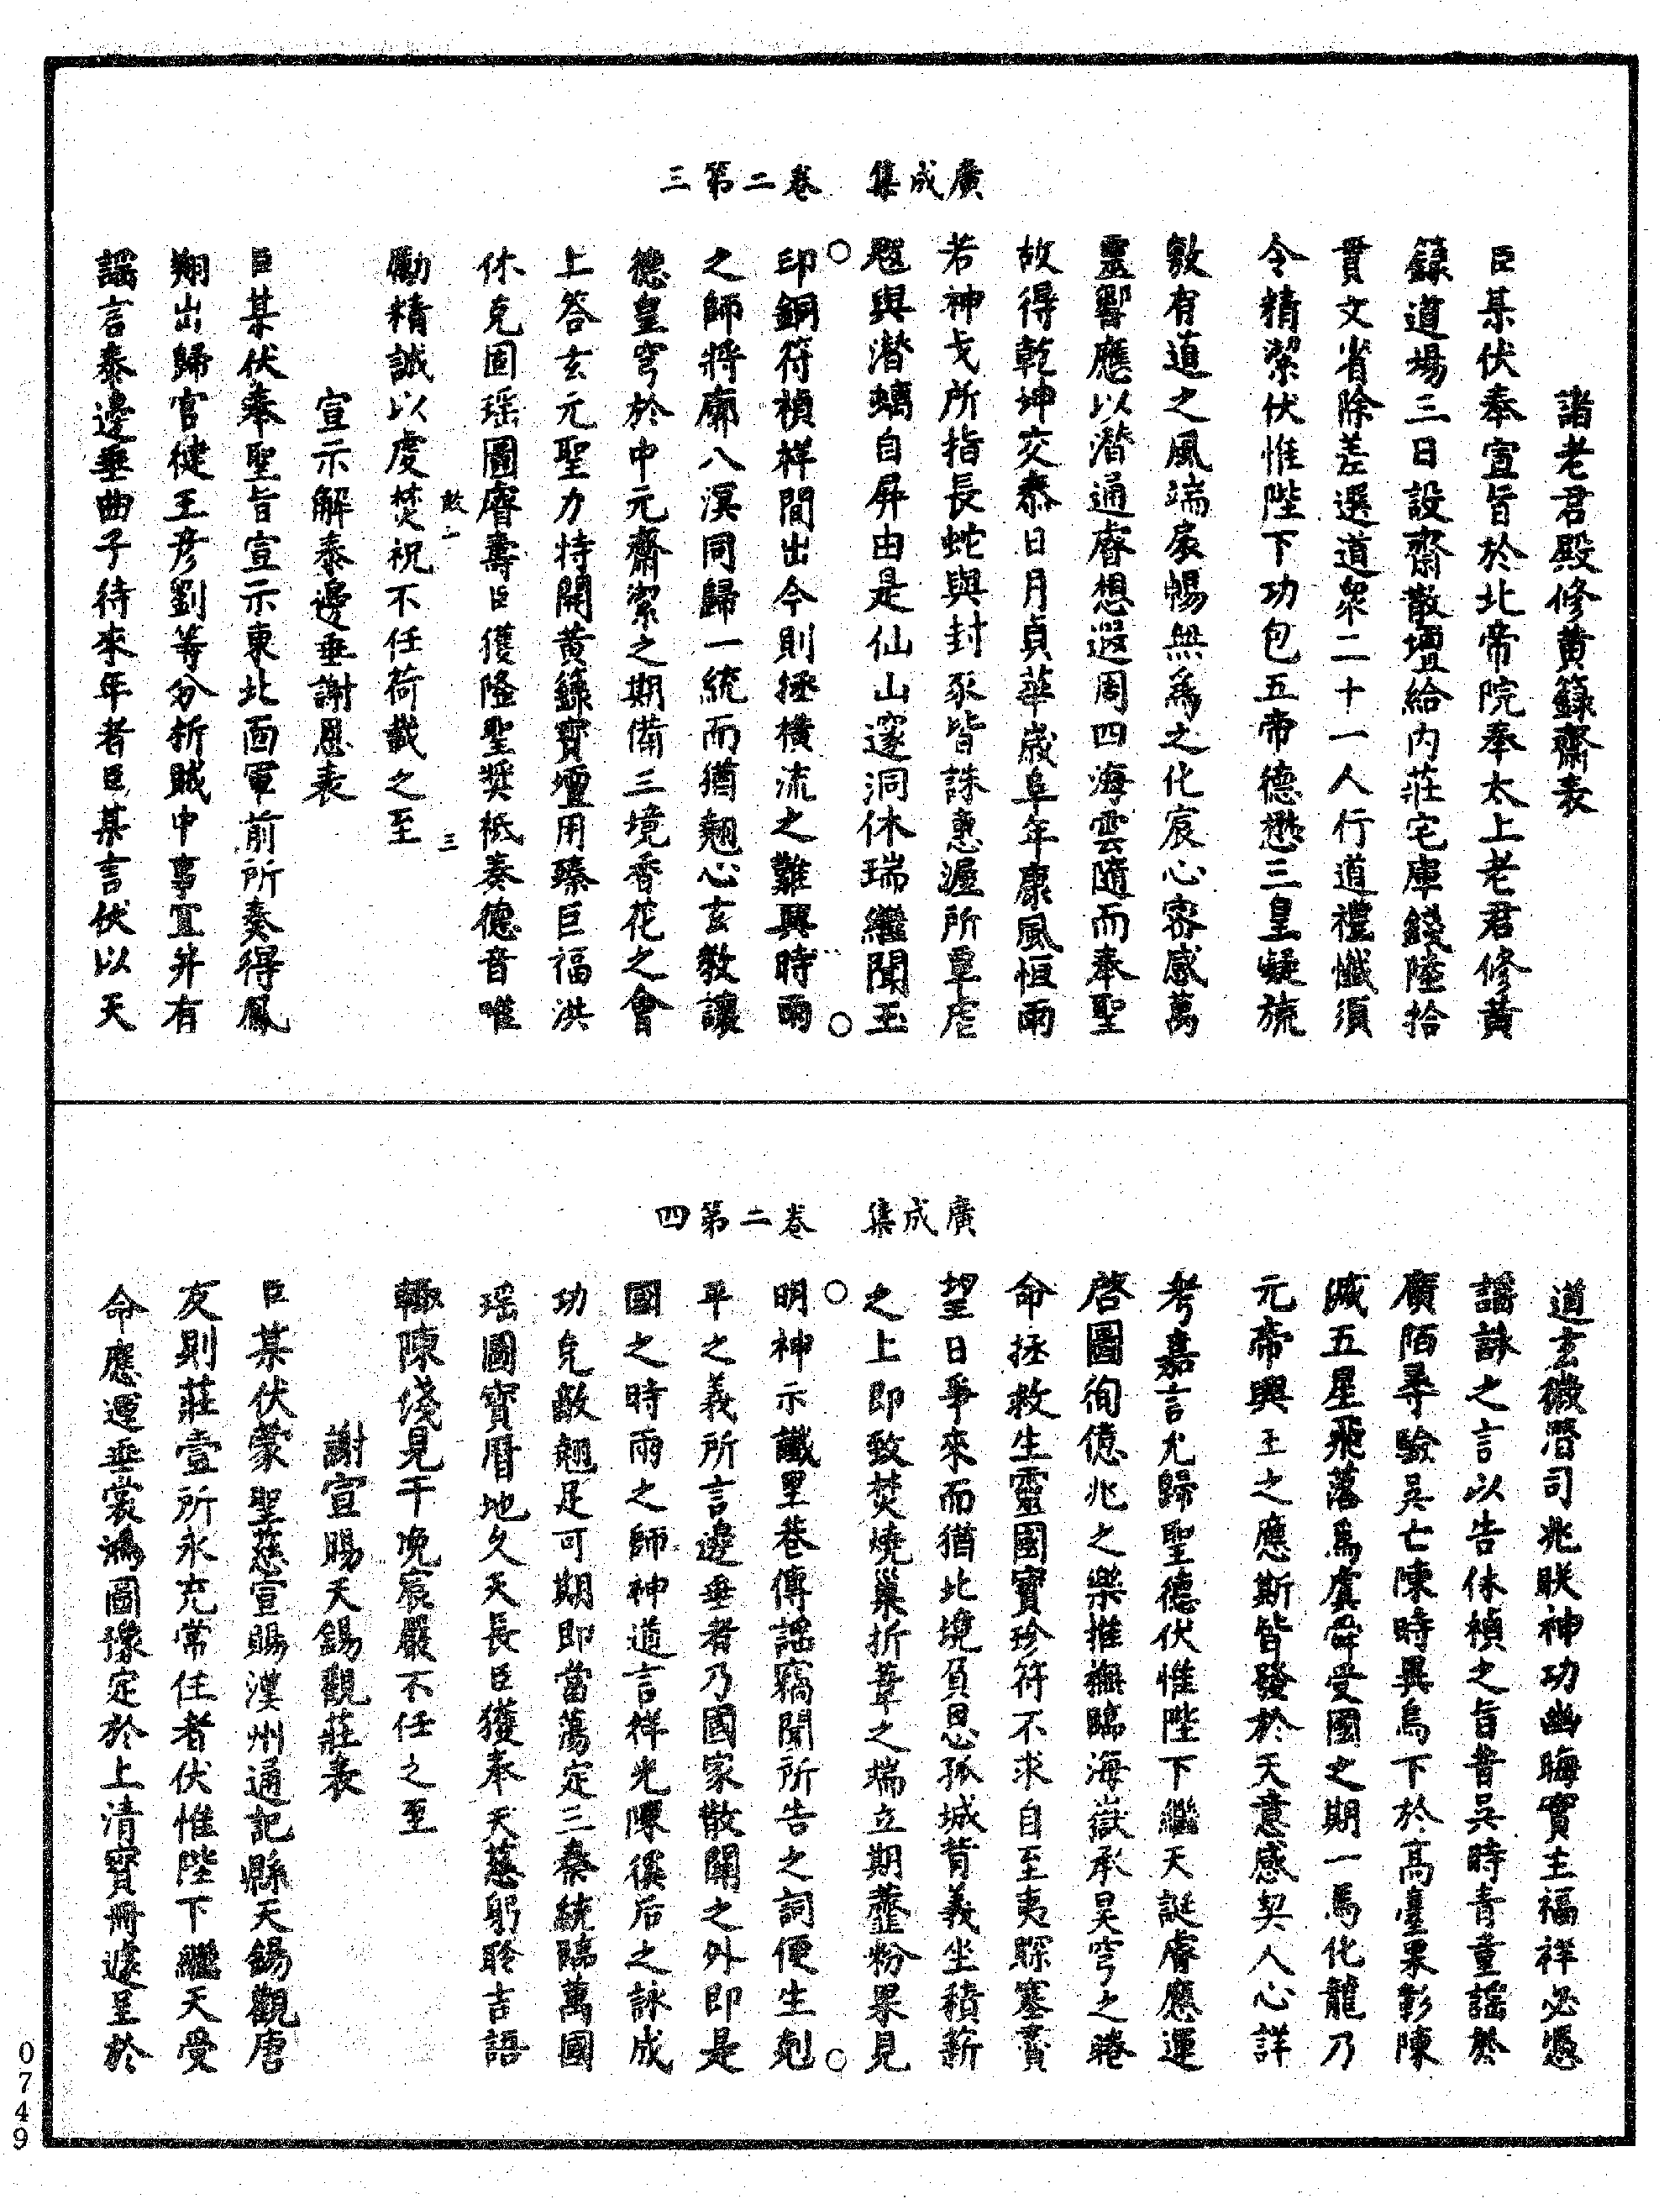 廣成集　卷二第三
諸老君殿修黃籙齋表
臣某伏奉宣旨於北帝院奉太上老君修黃
籙道場三日設齋散壇給內莊宅庫錢陸拾
貫文省除差選道衆二十一人行道禮懺須
令精潔伏惟陛下功包五帝德懋三皇蜺旒
敷有道之風端扆暢無爲之化宸心密感萬
靈響應以潛通睿想遐周四海雲隨而奉聖
故得乾坤交泰日月貞華歲阜年康風恒雨
若神戈所指長蛇與封豕皆誅惠渥所覃虐
魃與潛螭自屏由是仙山邃洞休瑞繼聞玉
印銅符禎祥間出今則拯橫流之難興時雨
之師將廓八溟同歸一統而猶翹心玄敎讓
德皇穹於中元齋潔之期備三境香花之會
上答玄元聖力特開黃籙寶壇用臻巨福洪
休克固瑤圖睿壽臣獲隆聖奬祗奏德音唯
敷二　三
勵精誠以虔焚祝不任荷戴之至
宣示解泰邊垂謝恩表
臣某伏奉聖旨宣示東北面軍前所奏得鳳
翔出歸官健王彥劉等分析賊中事宜幷有
謡言泰邊垂曲子待來年者臣某言伏以天
廣成集　卷二第四
道玄微潛司兆朕神功幽晦實主福祥必憑
謡詠之言以告休禎之旨昔吳時青童謡於
廣陌尋驗吳亡陳時異鳥下於高臺果彰陳
滅五星飛落爲虞舜受國之期一馬化龍乃
元帝興王之應斯皆發於天意感契人心詳
考嘉言允歸聖德伏惟陛下繼天誕睿應運
啓圖徇億兆之樂推撫臨海嶽承昊穹之睠
命拯救生靈國寶珍符不求自至夷賝塞賮
望日爭來而猶北境負恩孤城背義坐積薪
之上即致焚燒巢折葦之端立期虀粉果見
明神示讖里巷傳謡竊聞所告之詞便生剋
平之義所言邊垂者乃國家散關之外即是
國之時雨之師神道言祥光隣徯后之詠成
功克敵翹足可期即當蕩定三秦統臨萬國
瑤圖寶曆地久天長臣獲奉天慈躬聆吉語
輙陳淺見干冕宸嚴不任之至
謝宣賜天錫觀莊表
臣某伏蒙聖慈宣賜漢州通記縣天錫觀唐
友則莊壹所永充常住者伏惟陛下繼天受
命應運垂裳鴻圖豫定於上清寶冊遽呈於
0749